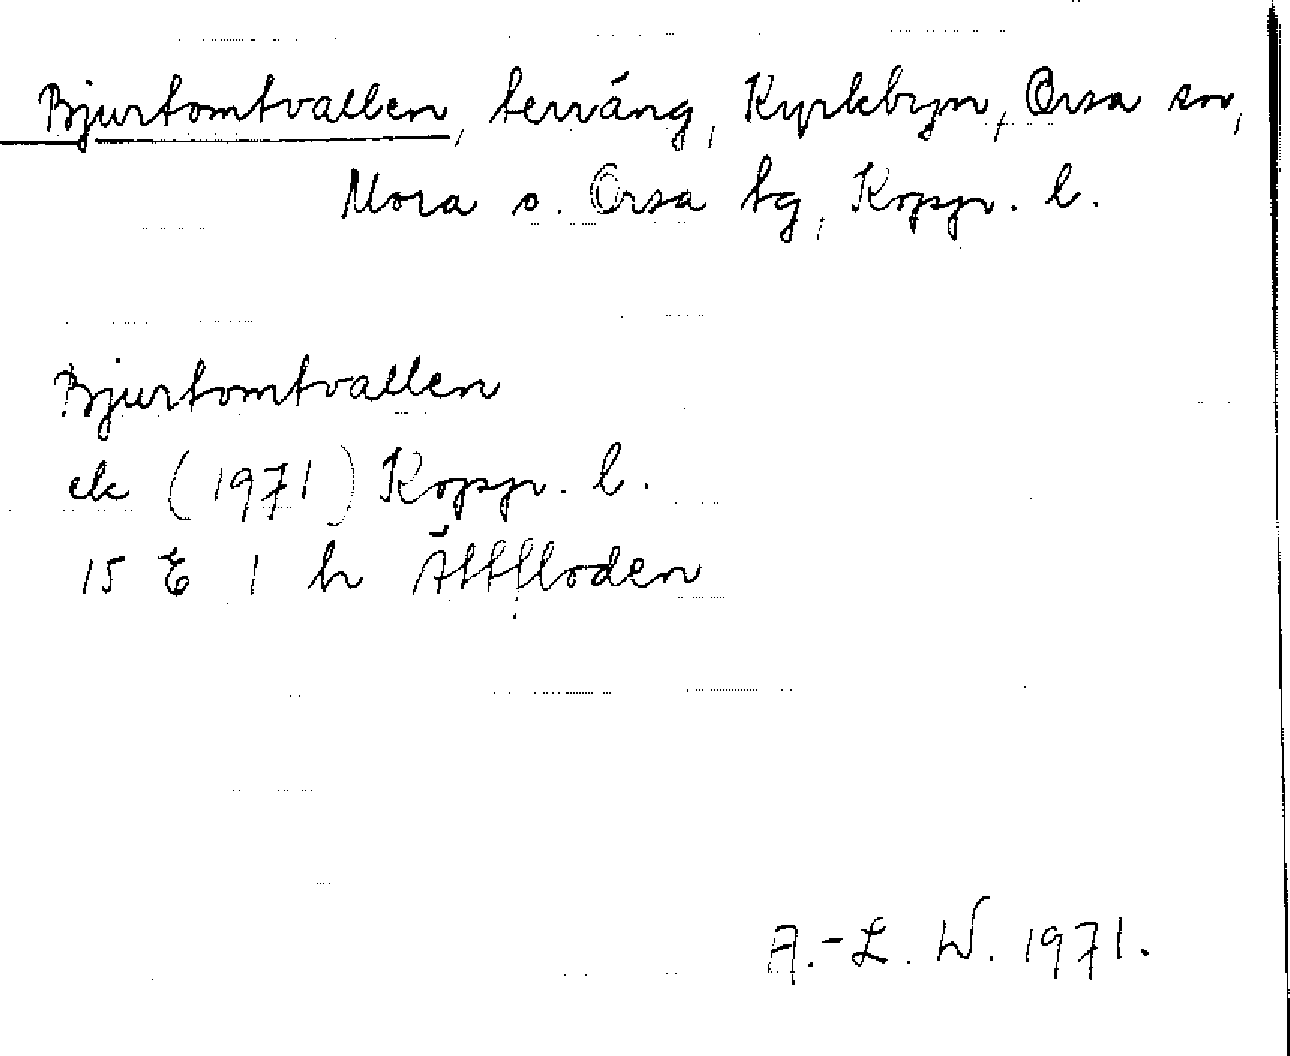 Bjurtomtvallen, terräng, Kyrkbyn, Orsa sn,
Mora o. Orsa tg, Koppr. l.
Bjurtomtvallen
ek (1971) Koppr. l.
15 E 1 h Ättfloden
A.-L. W. 1971.